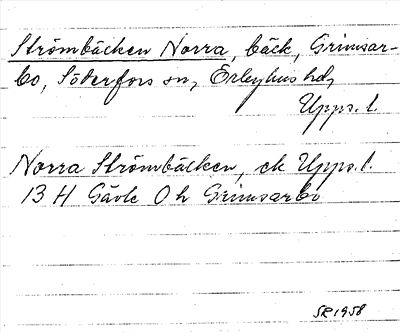 Strömbäcken Norra, bäck, Grimsar-
bo, Söderfors sn, Örbyhus hd,
Upps. l.
Norra Strömbäcken, ek Upps. l.
13 H Gävle O h Grimsarbo
SR 1958